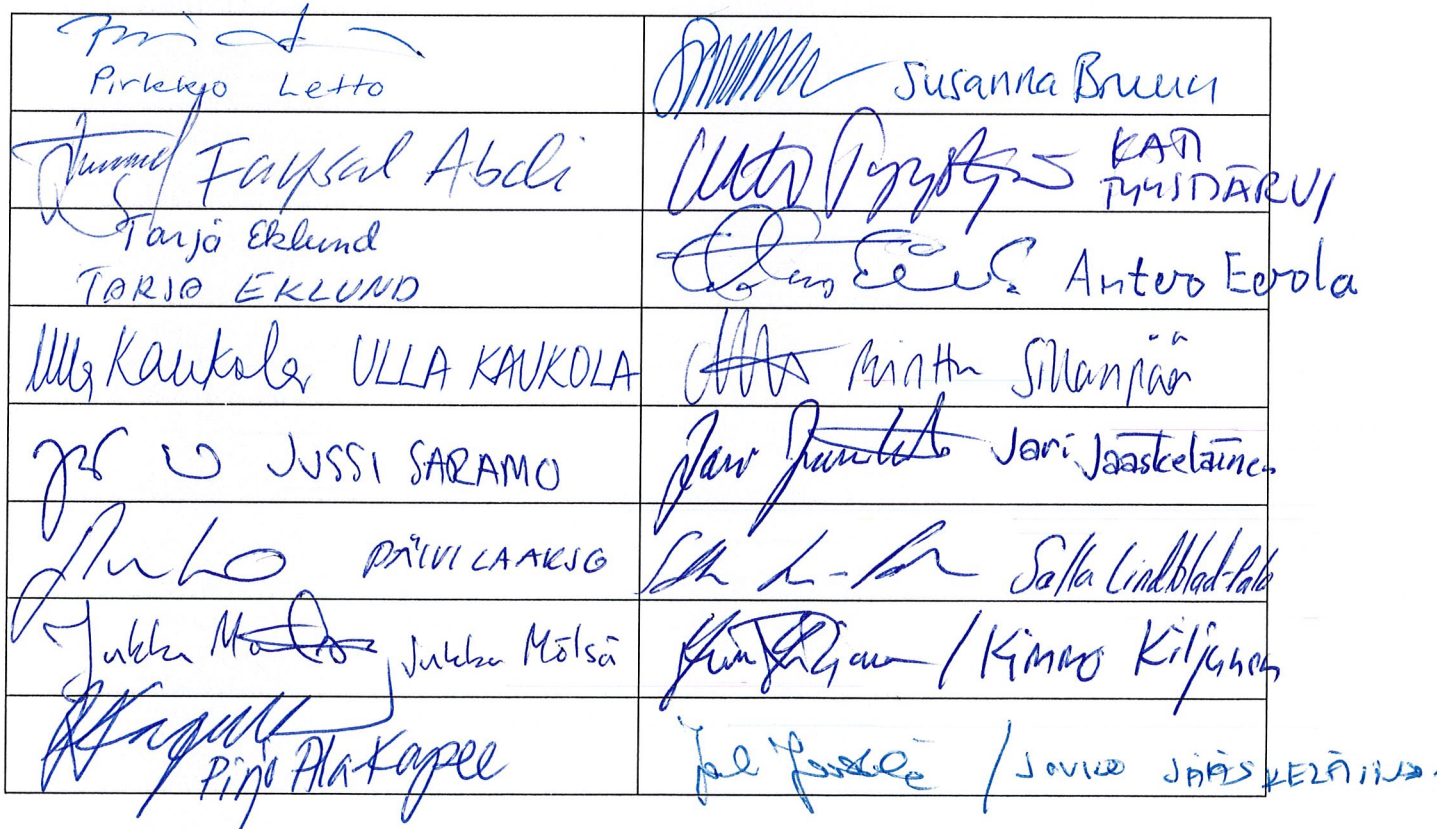 Pirkkjo Letto
Susanna Bruun
Faysal Abdi
KATI
TYYSTJÄRVI
Tarja Eklund
TARJA EKLUND
Antero Eerola
Ulla Kaukola ULLA KAUKOLA
Minttu Sillanpää
JUSSI SARAMO
Jari Jääskeläinen
PÄIVI LAAKSO
Salla Lindblad-Palo
Jukka Mölsä Jukka Mölsä
/ Kimmo Kiljunen
Pirjo Ala-Kapee
/ JOUKO JÄÄSKELÄINEN.